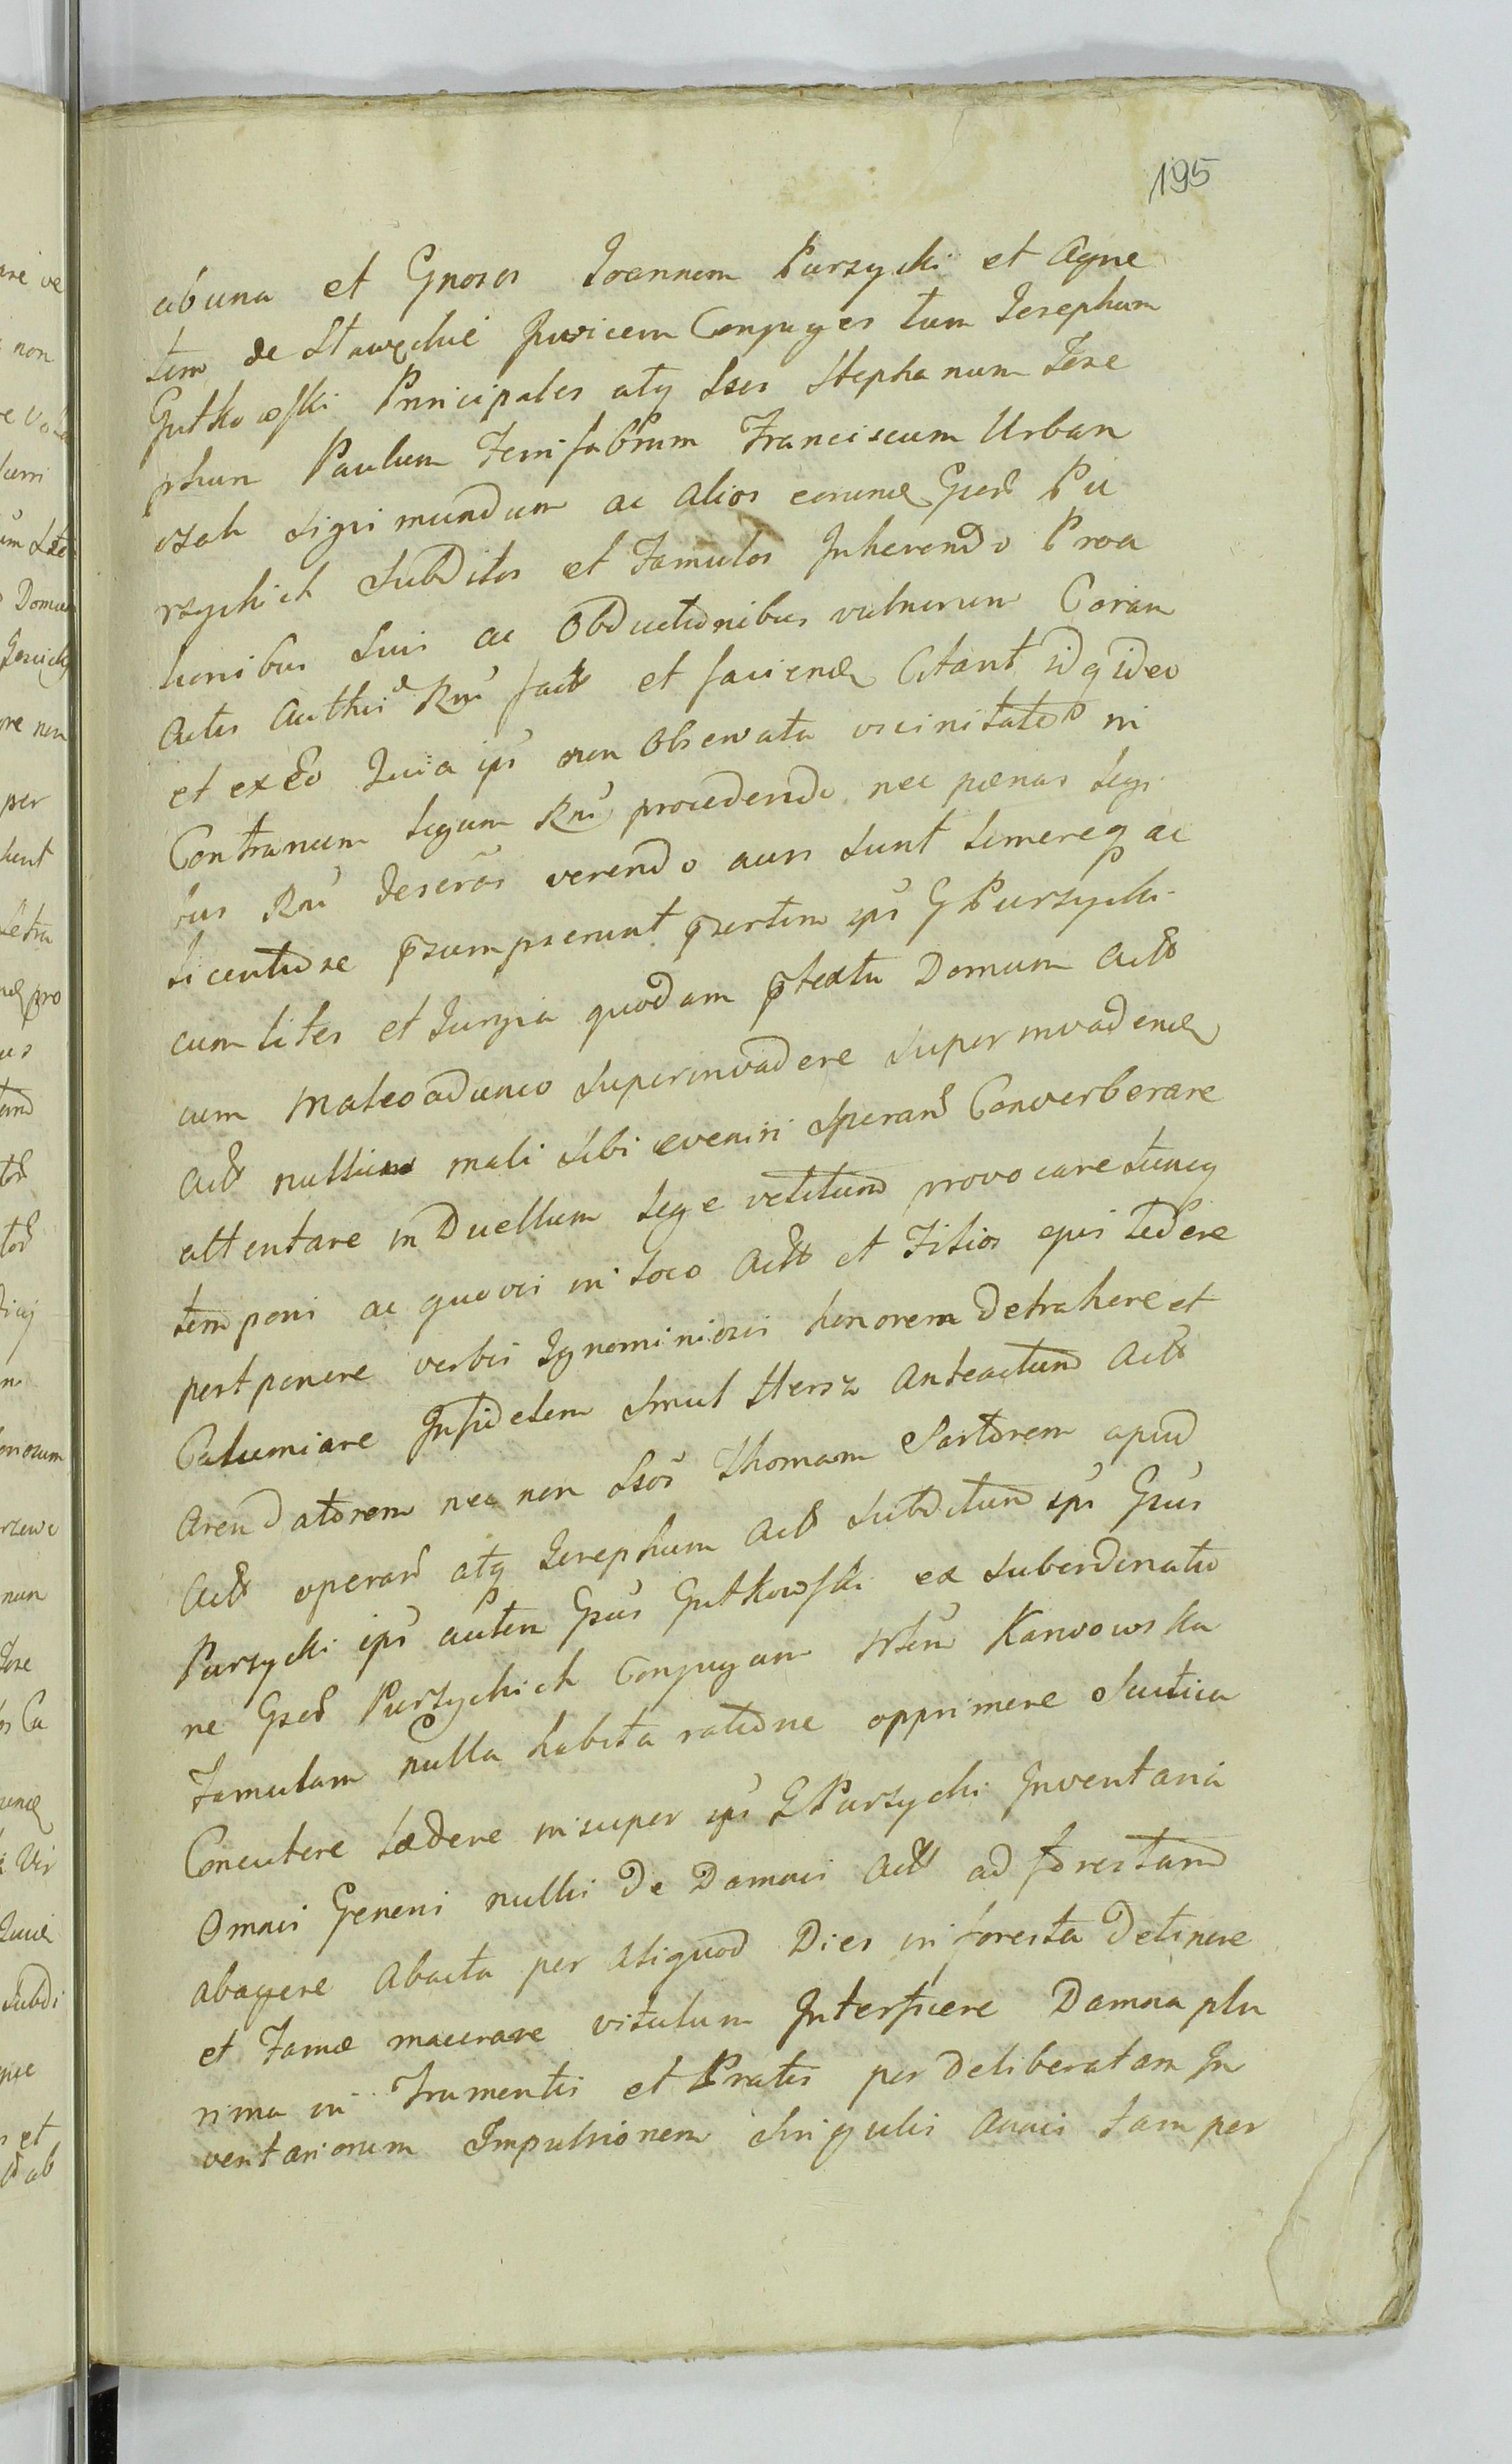 195
ab una et Gnosos Joannem Parzycki et Agne
tem de Stawęckie Invicem Conjuges tum Josephum
Gutkowski Principales atq Lsos Stephanum Jose
phum Paulum Ferrifabrum Franciscum Urban
czak Sigismundum ac alios eorund Gsod Pa
rzyckich Subditos et Famulos Inherendo Prota
tionibus suis ac Obductionibus vulnerum Coram
Actis Authcis Rni fact et faciend Citant idq ideo
et ex eo Quia ipsi non Observata vicinitate in
Contrarium Legum Rni procedendo nec pœnas Legi
bus Rni verendo ausi sunt temereq ac
licentiose psumpserunt psertim ips G Parzycki
cum lites et Jurgia quodam ptextu Domum Acts
cum Maleo adunco superinvadere superinvadend
Acts nullius mali sibi eveniri sperand Converberare
attentare in Duellum Lege vetitum provocare suoq
tempori ac quovis in loco Acts et Filios ejus ledere
postponere verbis Ignominiosis honorem Detrahere et
Calumiare Infidelem Smul Hersz Anteactum Acts
Arendatorem nec non Lsos Thomam Sartorem apud
Acts operand atq Josephum Acts subditum ips Gsus
Parzycki ips autem Gsus Gutkowski ex subordinatio
ne Gsod Parzyckich Conjugum Karwowska
Famulam nulla habita ratione opprimere Scutica
Concutere lædere insuper ips G Parzycki Inventaria
Omnis Generis nullis De Damnis Acts ad forestam
abagere Abacta per Aliquod Dies in foresta Detinere
et Fame macerare vitulum Interficere Damna plu
rima in Frumentis et Pratis per deliberatam In
ventariorum Impulsionem Singulis Annis tam per